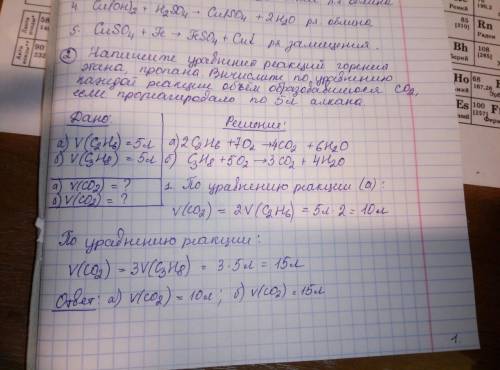 4. Cu(OH)2 + H2SO4 → CuSO4 + 2H2O р. обмена
5. CuSO4 + Fe → FeSO4 + Cu↓ р. замещения.
② Напишите уравнения реакций горения
этана, пропана. Вычислите по уравнению
каждой реакции объём образовавшегося CO2,
если прореагировало по 5л алкана
Дано:
а) V(C2H6) = 5л
б) V(C3H8) = 5л
а) V(CO2) = ?
б) V(CO2) = ?
Решение:
а) 2C2H6 + 7O2 → 4CO2 + 6H2O
б) C3H8 + 5O2 → 3CO2 + 4H2O
1. По уравнению реакции (а):
V(CO2) = 2V(C2H6) = 5л · 2 = 10л
По уравнению реакции:
V(CO2) = 3V(C3H8) = 3 · 5л = 15л
Ответ: а) V(CO2) = 10л; б) V(CO2) = 15л
1
Rn
Радон
Bh
Борий
Ho
Es